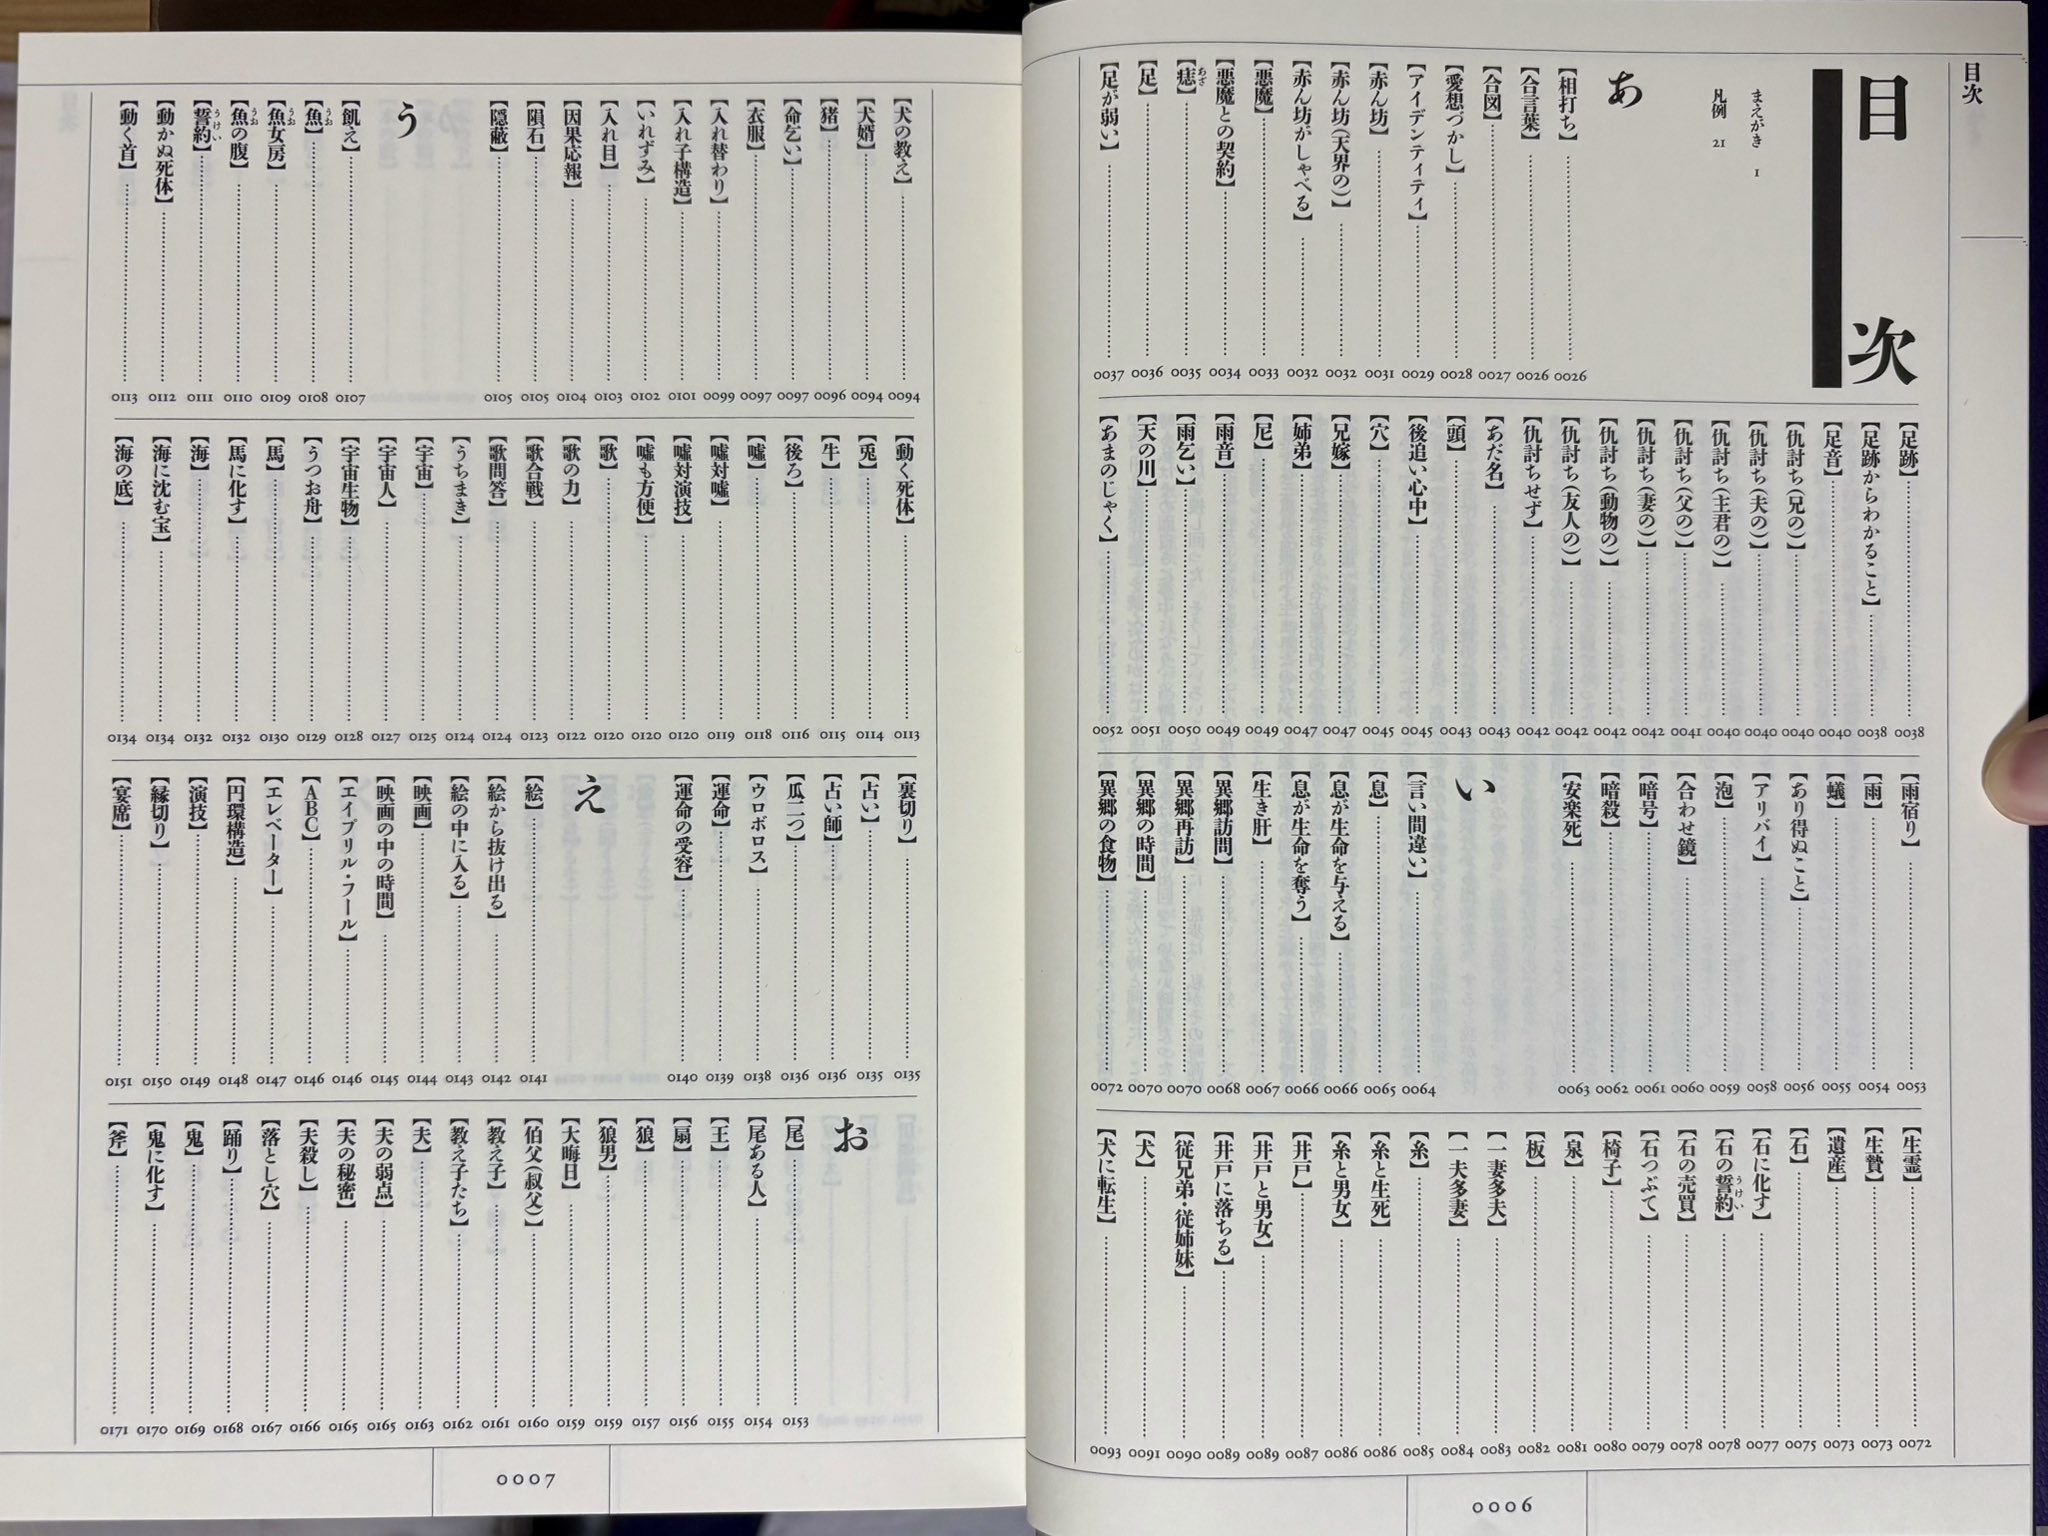 目次
目次
まえがき 1
凡例 21
あ
【相打ち】 0026
【合言葉】 0026
【合図】 0027
【愛想づかし】 0028
【アイデンティティ】 0029
【赤ん坊】 0031
【赤ん坊（天界の）】 0032
【赤ん坊がしゃべる】 0032
【悪魔】 0033
【悪魔との契約】 0034
【痣】 0035
あざ
【足】 0036
【足が弱い】 0037
【足跡】 0038
【足跡からわかること】 0038
【足音】 0040
【仇討ち（兄の）】 0040
【仇討ち（夫の）】 0040
【仇討ち（主君の）】 0040
【仇討ち（父の）】 0041
【仇討ち（妻の）】 0042
【仇討ち（動物の）】 0042
【仇討ち（友人の）】 0042
【仇討ちせず】 0042
【あだ名】 0043
【頭】 0043
【後追い心中】 0045
【穴】 0045
【兄嫁】 0047
【姉弟】 0047
【尼】 0049
【雨音】 0049
【雨乞い】 0050
【天の川】 0051
【あまのじゃく】 0052
【雨宿り】 0053
【雨】 0054
【蟻】 0055
【あり得ぬこと】 0056
【アリバイ】 0058
【泡】 0059
【合わせ鏡】 0060
【暗号】 0061
【暗殺】 0062
【安楽死】 0063
い
【言い間違い】 0064
【息】 0065
【息が生命を与える】 0066
【息が生命を奪う】 0066
【生き肝】 0067
【異郷訪問】 0068
【異郷再訪】 0070
【異郷の時間】 0070
【異郷の食物】 0072
【生霊】 0072
【生贄】 0073
【遺産】 0073
【石】 0075
【石に化す】 0077
【石の誓約】 0078
うけい
【石の売買】 0078
【石つぶて】 0079
【椅子】 0080
【泉】 0081
【板】 0082
【一妻多夫】 0083
【一夫多妻】 0084
【糸】 0085
【糸と生死】 0086
【糸と男女】 0086
【井戸】 0087
【井戸と男女】 0089
【井戸に落ちる】 0089
【従兄弟・従姉妹】 0090
【犬】 0091
【犬に転生】 0093
0006
【犬の教え】 0094
【犬婿】 0094
【猪】 0096
【命乞い】 0097
【衣服】 0097
【入れ替わり】 0099
【入れ子構造】 0101
【いれずみ】 0102
【入れ目】 0103
【因果応報】 0104
【隕石】 0105
【隠蔽】 0105
う
【飢え】 0107
【魚】 0108
うお
【魚女房】 0109
うお
【魚の腹】 0110
うお
【誓約】 0111
うけい
【動かぬ死体】 0112
【動く首】 0113
【動く死体】 0113
【兎】 0114
【牛】 0115
【後ろ】 0116
【嘘】 0118
【嘘対嘘】 0119
【嘘対演技】 0120
【嘘も方便】 0120
【歌】 0120
【歌の力】 0122
【歌合戦】 0123
【歌問答】 0124
【うちまき】 0124
【宇宙】 0125
【宇宙人】 0127
【宇宙生物】 0128
【うつお舟】 0129
【馬】 0130
【馬に化す】 0132
【海】 0132
【海に沈む宝】 0134
【海の底】 0134
【裏切り】 0135
【占い】 0135
【占い師】 0136
【瓜二つ】 0136
【ウロボロス】 0138
【運命】 0139
【運命の受容】 0140
え
【絵】 0141
【絵から抜け出る】 0142
【絵の中に入る】 0143
【映画】 0144
【映画の中の時間】 0145
【エイプリル・フール】 0146
【ABC】 0146
【エレベーター】 0147
【円環構造】 0148
【演技】 0149
【縁切り】 0150
【宴席】 0151
お
【尾】 0153
【尾ある人】 0154
【王】 0155
【扇】 0156
【狼】 0157
【狼男】 0159
【大晦日】 0159
【伯父（叔父）】 0160
【教え子】 0161
【教え子たち】 0162
【夫】 0163
【夫の弱点】 0165
【夫の秘密】 0165
【夫殺し】 0166
【落とし穴】 0167
【踊り】 0168
【鬼】 0169
【鬼に化す】 0170
【斧】 0171
0007